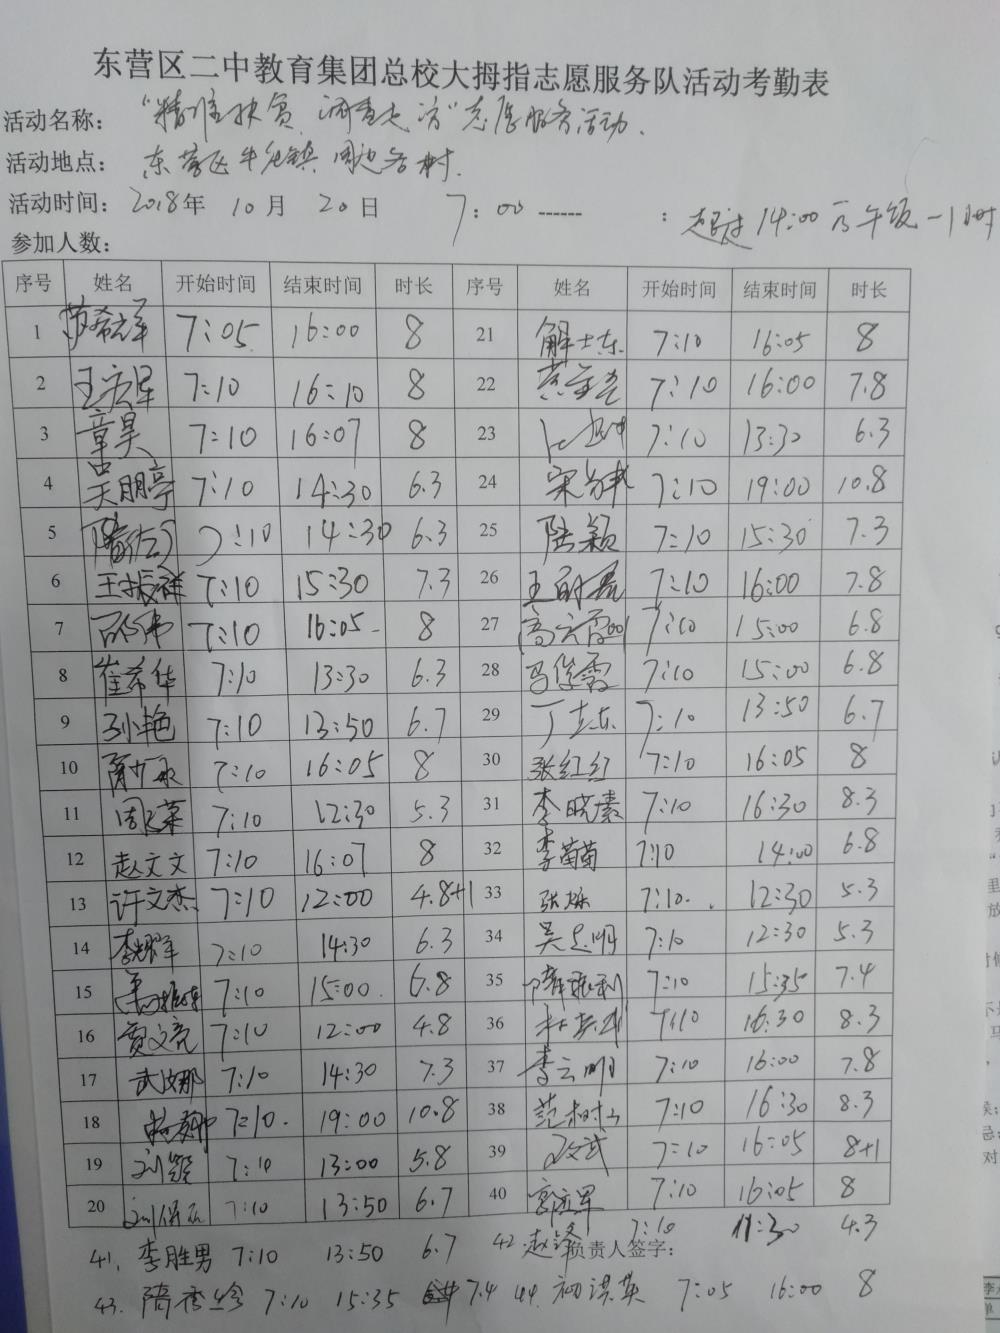 东营区二中教育集团总校大拇指志愿服务队活动考勤表
活动名称： "精准扶贫 调查走访"志愿服务活动.
活动地点： 东营区牛庄镇 周边各村.
活动时间：2018年 10月 20日 7：00 ------ ：超过14:00 乃午饭一小时
参加人数：
序号 姓名 开始时间 结束时间 时长 序号 姓名 开始时间 结束时间 时长
1 7:05 16:00 8 21 解士东 7:10 16:05 8
2 7:10 16:10 8 22 7:10 16:00 7.8
3 章昊 7:10 16:07 8 23 7:10 13:30 6.3
4 吴朋亭 7:10 14:30 6.3 24 7:10 19:00 10.8
5 7:10 14:30 6.3 25 陆颖 7:10 15:30 7.3
6 王振祥 7:10 15:30 7.3 26 7:10 16:00 7.8
7 7:10 16:05 8 27 7:10 15:00 6.8
8 崔希华 7:10 13:30 6.3 28 马俊霞 7:10 15:00 6.8
9 孙艳 7:10 13:50 6.7 29 丁立东 7:10 13:50 6.7
10 7:10 16:05 8 30 张红红 7:10 16:05 8
11 7:10 12:30 5.3 31 李晓 7:10 16:30 8.3
12 赵文文 7:10 16:07 8 32 李菊菊 7:10 14:00 6.8
13 许文杰 7:10 12:00 4.8+1 33 张 7:10. 12:30 5.3
14 李耀军 7:10 14:30 6.3 34 吴志明 7:10 12:30 5.3
15 7:10 15:00 6.8 35 7:10 15:35 7.4
16 贾文亮 7:10 12:00 4.8 36 7:10 16:30 8.3
17 武 娜 7:10 14:30 7.3 37 李云明 7:10 16:00 7.8
18 7:10 19:00 10.8 38 范树 7:10 16:30 8.3
19 刘 7:10 13:00 5.8 39 7:10 16:05 8+1
20 刘保 7:10 13:50 6.7 40 郭 军 7:10 16:05 8
41. 李胜男 7:10 13:50 6.7 42. 赵锋 7:10 11:30 4.3
负责人签字：
43. 隋香 7:10 15:35 7.4 44. 初洪英 7:05 16:00 8